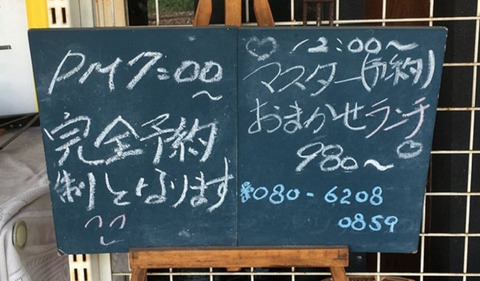 PM7:00
~
完全予約
制となります
♡12:00~
マスター(予約)
おまかせランチ
980~♡
080-6208
0859